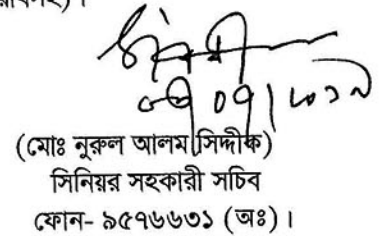 (মোঃ নুরুল আলম সিদ্দীক)
সিনিয়র সহকারী সচিব
ফোন- ৯৫৭৬৬৩১ (অঃ)।